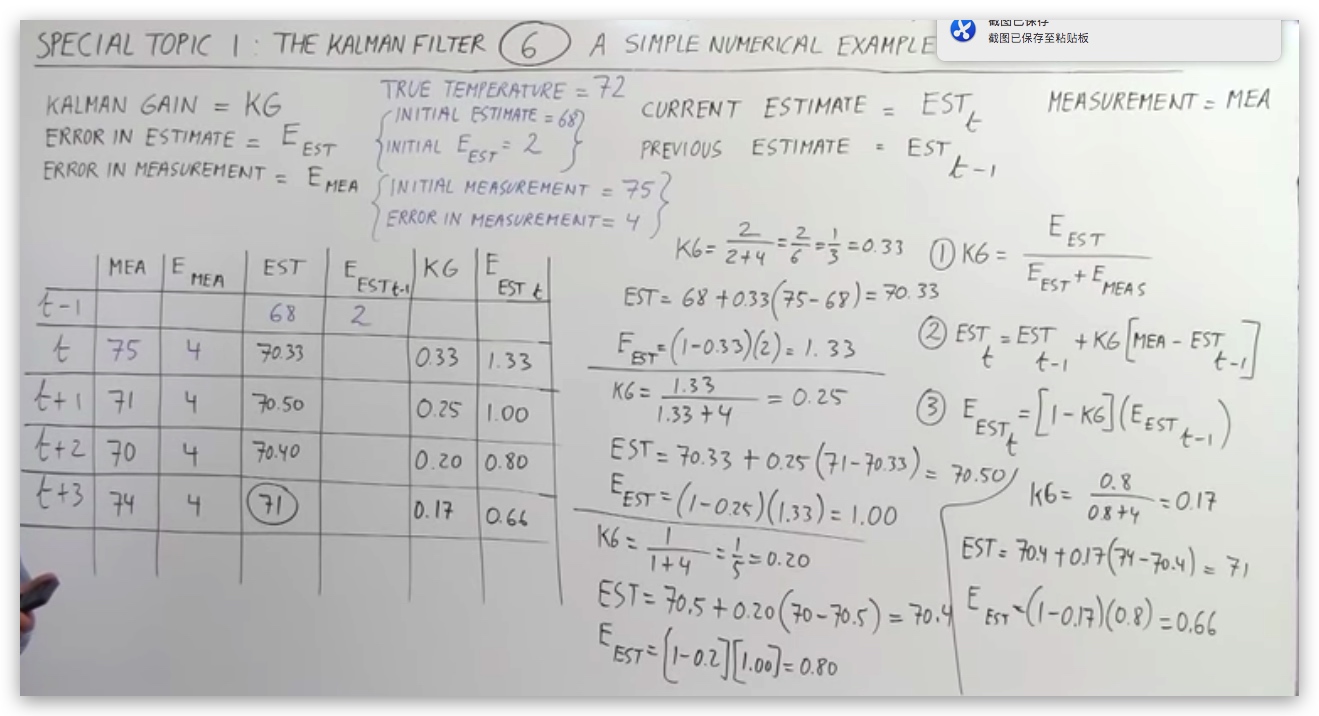 SPECIAL TOPIC 1: THE KALMAN FILTER 6 A SIMPLE NUMERICAL EXAMPLE
截图已保存
截图已保存至粘贴板
KALMAN GAIN = KG
ERROR IN ESTIMATE = E_EST
ERROR IN MEASUREMENT = E_MEA
TRUE TEMPERATURE = 72
{INITIAL ESTIMATE = 68
INITIAL E_EST = 2}
{INITIAL MEASUREMENT = 75
ERROR IN MEASUREMENT = 4}
CURRENT ESTIMATE = EST_t
PREVIOUS ESTIMATE = EST_t-1
MEASUREMENT = MEA
MEA E_MEA EST E_EST t-1 KG E_EST t
t-1 68 2
t 75 4 70.33 0.33 1.33
t+1 71 4 70.50 0.25 1.00
t+2 70 4 70.40 0.20 0.80
t+3 74 4 71 0.17 0.66
KG = 2/(2+4) = 2/6 = 1/3 = 0.33
EST = 68 + 0.33(75-68) = 70.33
E_EST = (1-0.33)(2) = 1.33
KG = 1.33/(1.33+4) = 0.25
EST = 70.33 + 0.25(71-70.33) = 70.50
E_EST = (1-0.25)(1.33) = 1.00
KG = 1/(1+4) = 1/5 = 0.20
EST = 70.5 + 0.20(70-70.5) = 70.4
E_EST = [1-0.2][1.00] = 0.80
① KG = E_EST/(E_EST + E_MEAS)
② EST_t = EST_t-1 + KG[MEA - EST_t-1]
③ E_EST_t = [1-KG](E_EST_t-1)
KG = 0.8/(0.8+4) = 0.17
EST = 70.4 + 0.17(74-70.4) = 71
E_EST = (1-0.17)(0.8) = 0.66